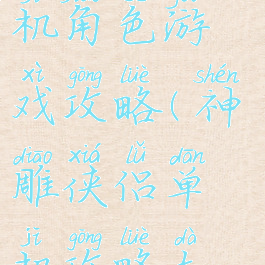 机角色游
xì gōng lüè shén
戏攻略(神
diāo xiá lǚ dān
雕侠侣单
jī gōng lüè dà
机攻略大